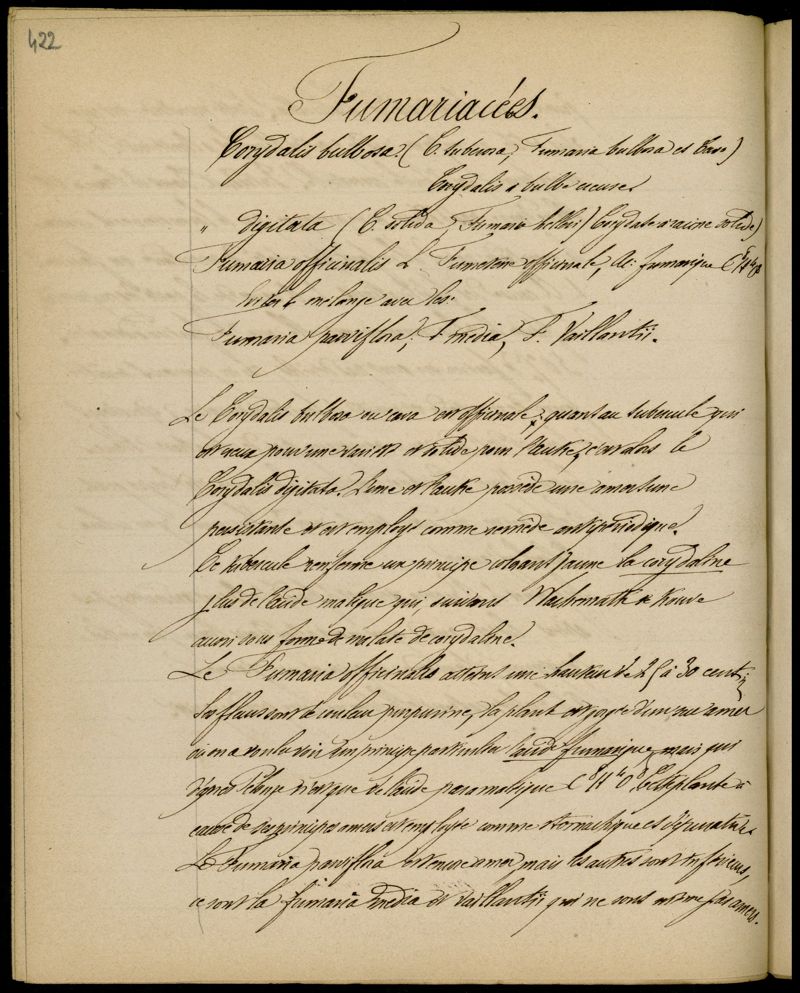 422
Fumariacées.
Corydalis bulbosa. (C. tuberosa, Fumaria bulbosa et Cava)
Corydalis à bulbe creuse.
" digitata (C. solida, Fumaria Halleri) Corydale à racine solide)
Fumaria officinalis L. Fumeterre officinale, Ac: fumarique C H O
mélange avec les:
Fumaria parviflora, F. media, F. Vaillantii.
Le Corydalis bulbosa ou cava est officinale; quant au tubercule qui
est creux pour une et solide pour l'autre, c'est alors le
Corydalis digitata. L'une et l'autre possède une amertume
persistante et est employé comme remède antipériodique.
Ce tubercule renferme un principe colorant jaune la corydaline
plus de l'acide malique qui suivant Wackenroder se trouve
aussi sous forme de malate de corydaline.
Le Fumaria officinalis atteint une hauteur de 25 à 30 centi;
Ses fleurs sont de couleur purpurine, la plante est d'un suc amer
où on a voulu voir un principe particulier l'acide fumarique, mais qui
d'après n'est que de l'acide paramalique C⁸H⁴O⁸. Cette plante à
cause de ses principes amers est employée comme stomachique et dépurative.
Le Fumaria parviflora est encore amer, mais les autres sont inférieurs,
ce sont la fumaria media et Vaillantii qui ne sont même pas amers.